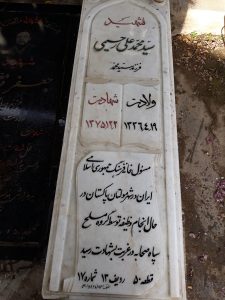 شهید
سید محمد علی رحیمی
فرزند سید محمد
ولادت شهادت
۱۳۳۶،۴،۱۹ ۱۳۷۵،۱۲،۲
مسئول خانه فرهنگ جمهوری اسلامی
ایران در شهر مولتان پاکستان در
حال انجام وظیفه توسط گروه مسلح
سپاه صحابه در غربت بشهادت رسید
قطعه ۵۰ ردیف ۱۳ شماره ۱۷